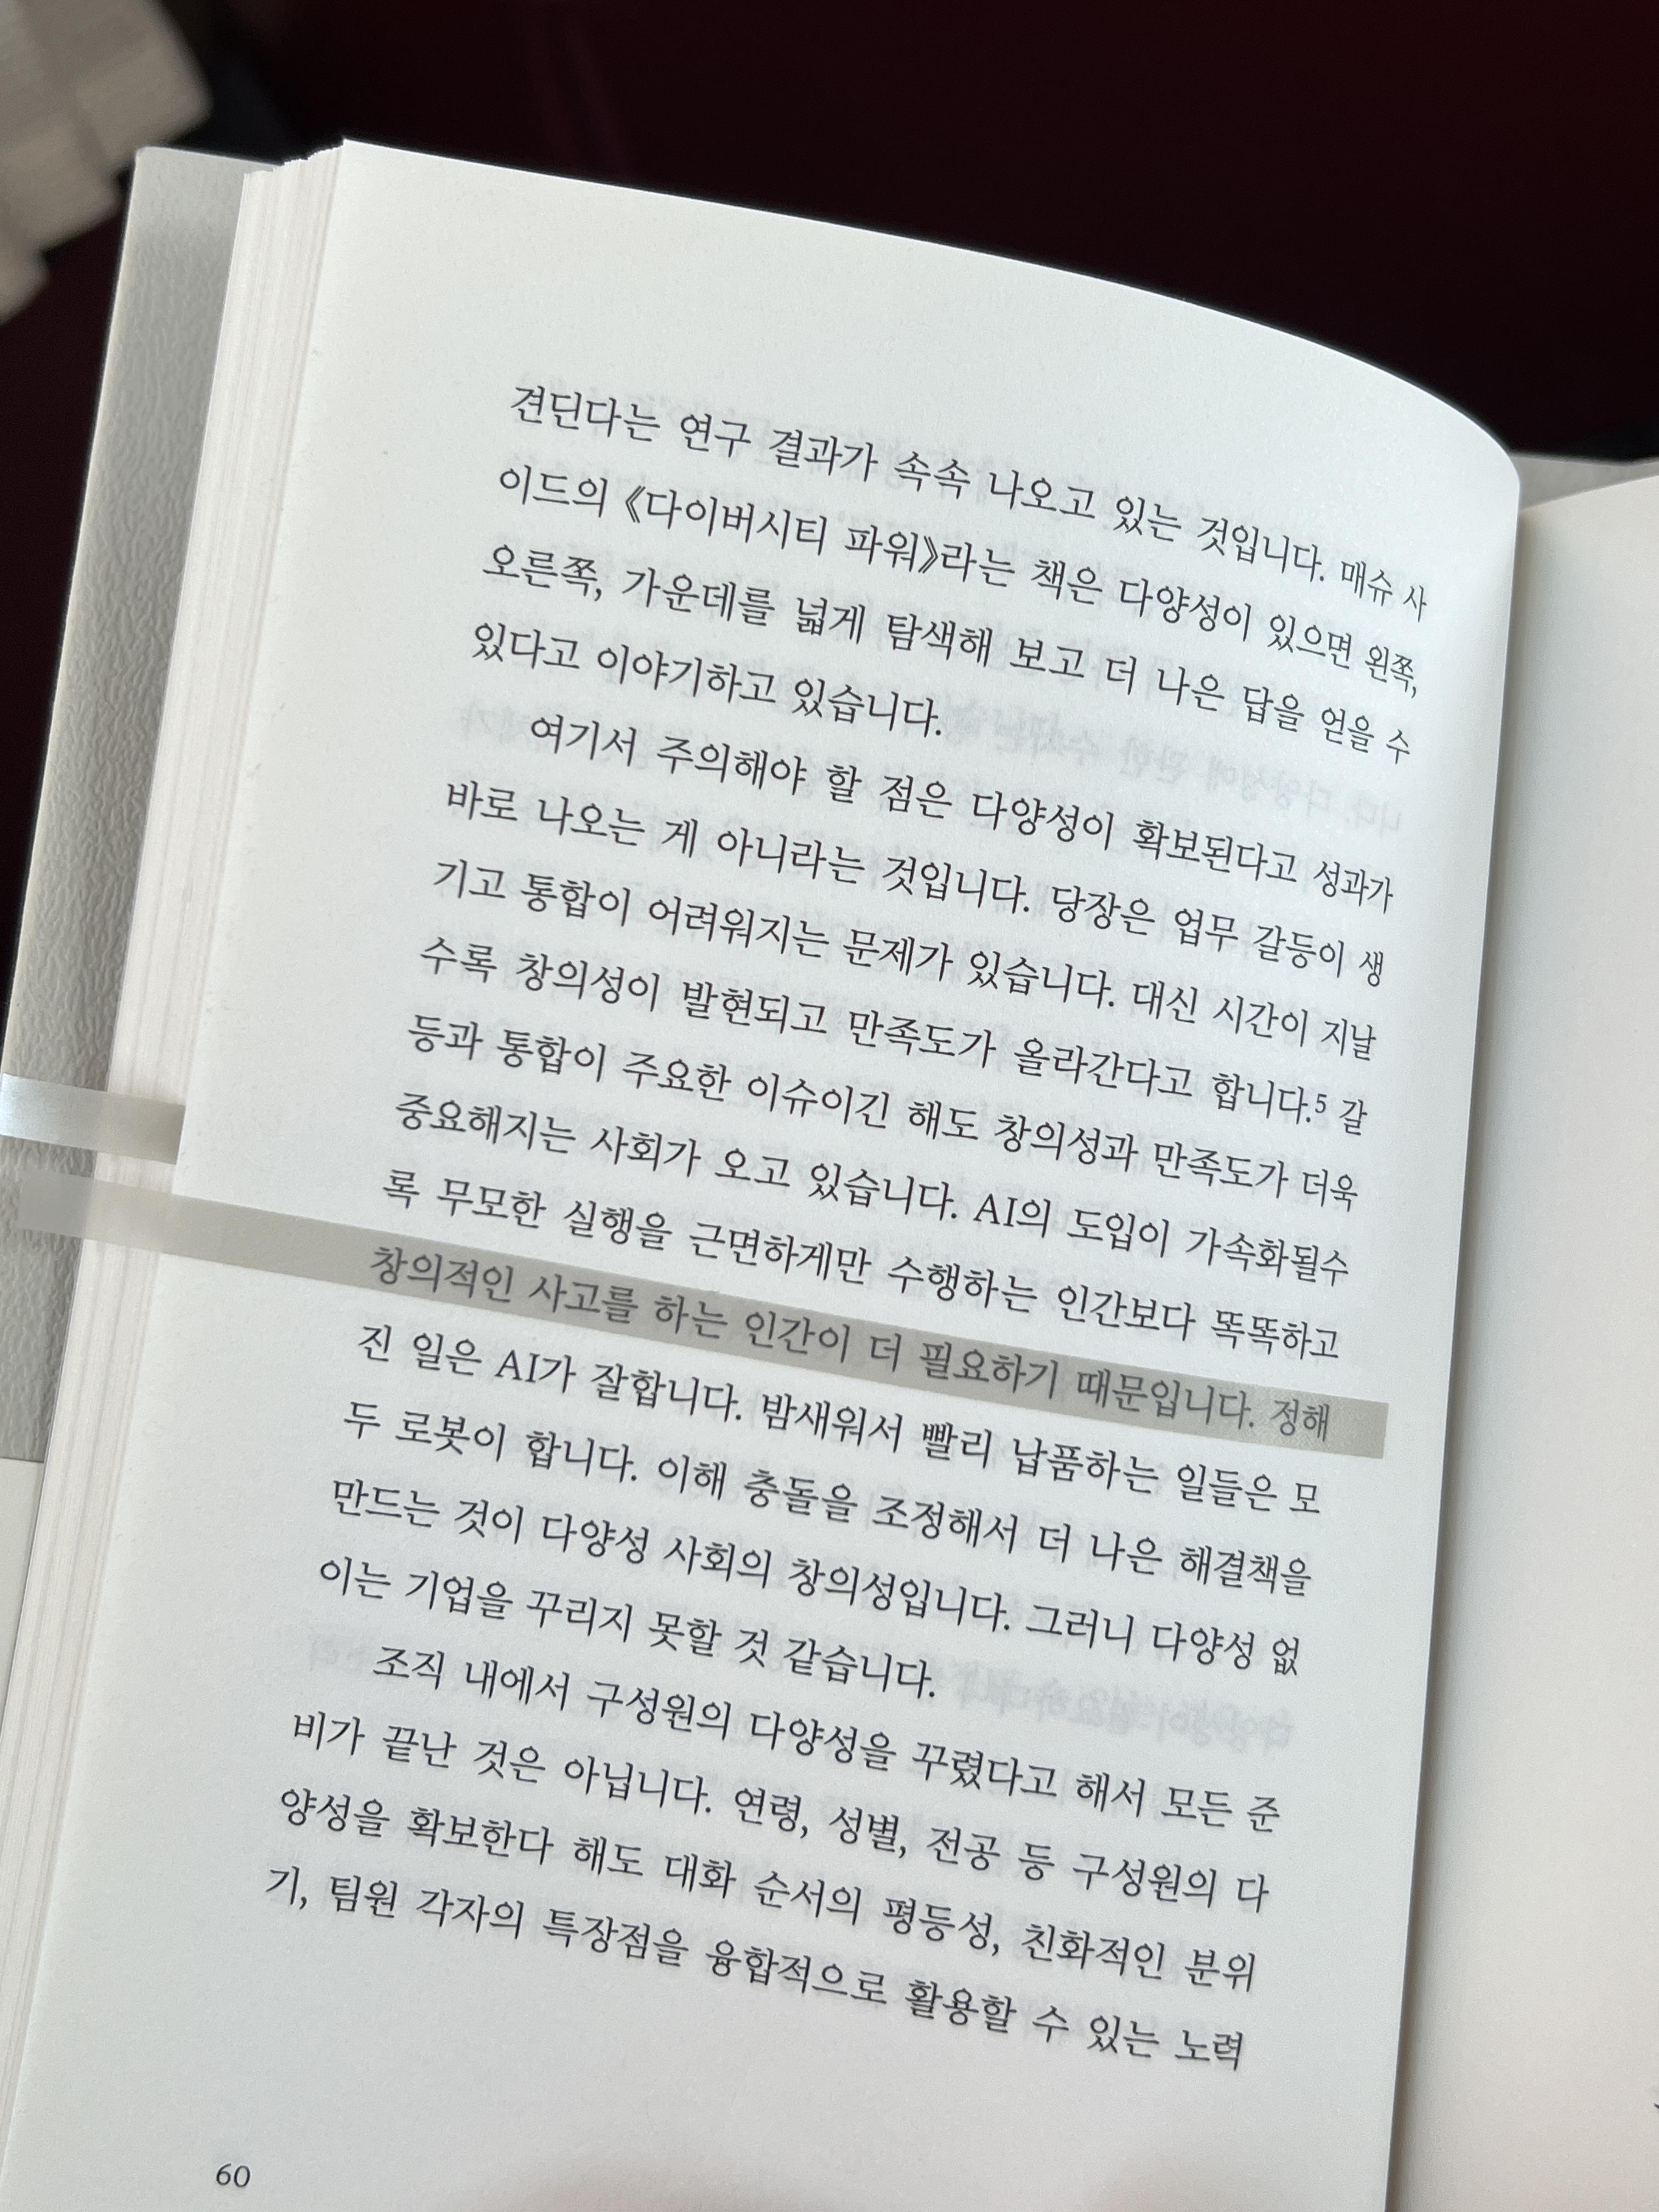 견딘다는 연구 결과가 속속 나오고 있는 것입니다. 매슈 사
이드의 《다이버시티 파워》라는 책은 다양성이 있으면 왼쪽,
오른쪽, 가운데를 넓게 탐색해 보고 더 나은 답을 얻을 수
있다고 이야기하고 있습니다.
여기서 주의해야 할 점은 다양성이 확보된다고 성과가
바로 나오는 게 아니라는 것입니다. 당장은 업무 갈등이 생
기고 통합이 어려워지는 문제가 있습니다. 대신 시간이 지날
수록 창의성이 발현되고 만족도가 올라간다고 합니다.5 갈
등과 통합이 주요한 이슈이긴 해도 창의성과 만족도가 더욱
중요해지는 사회가 오고 있습니다. AI의 도입이 가속화될수
록 무모한 실행을 근면하게만 수행하는 인간보다 똑똑하고
창의적인 사고를 하는 인간이 더 필요하기 때문입니다. 정해
진 일은 AI가 잘합니다. 밤새워서 빨리 납품하는 일들은 모
두 로봇이 합니다. 이해 충돌을 조정해서 더 나은 해결책을
만드는 것이 다양성 사회의 창의성입니다. 그러니 다양성 없
이는 기업을 꾸리지 못할 것 같습니다.
조직 내에서 구성원의 다양성을 꾸렸다고 해서 모든 준
비가 끝난 것은 아닙니다. 연령, 성별, 전공 등 구성원의 다
양성을 확보한다 해도 대화 순서의 평등성, 친화적인 분위
기, 팀원 각자의 특장점을 융합적으로 활용할 수 있는 노력
60